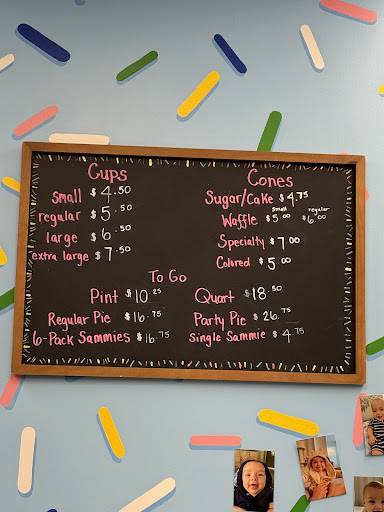 Cups
small $4.50
regular $5.50
large $6.50
extra large $7.50
Cones
Sugar/Cake $4.75
small regular
Waffle $5.00 $6.00
Specialty $7.00
Colored $5.00
To Go
Pint $10.25
Regular Pie $16.75
6-Pack Sammies $16.75
Quart $18.50
Party Pie $26.75
Single Sammie $4.75